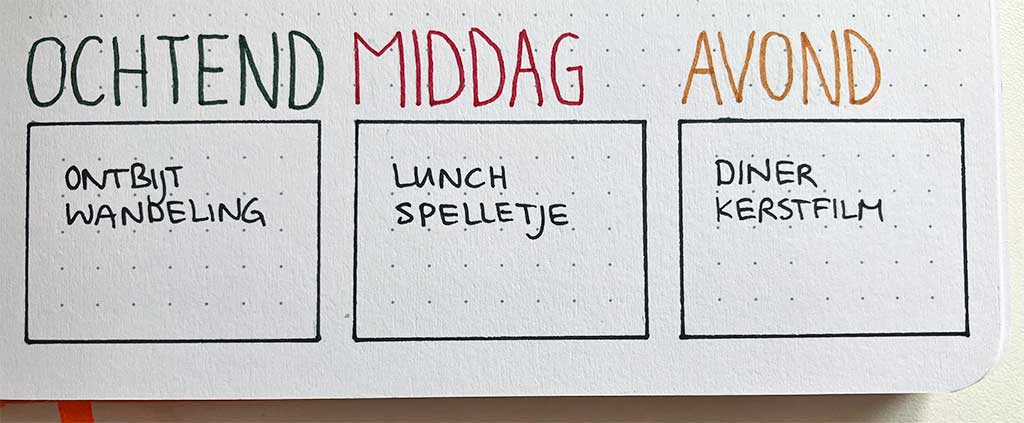 OCHTEND
ONTBIJT
WANDELING
MIDDAG
LUNCH
SPELLETJE
AVOND
DINER
KERSTFILM